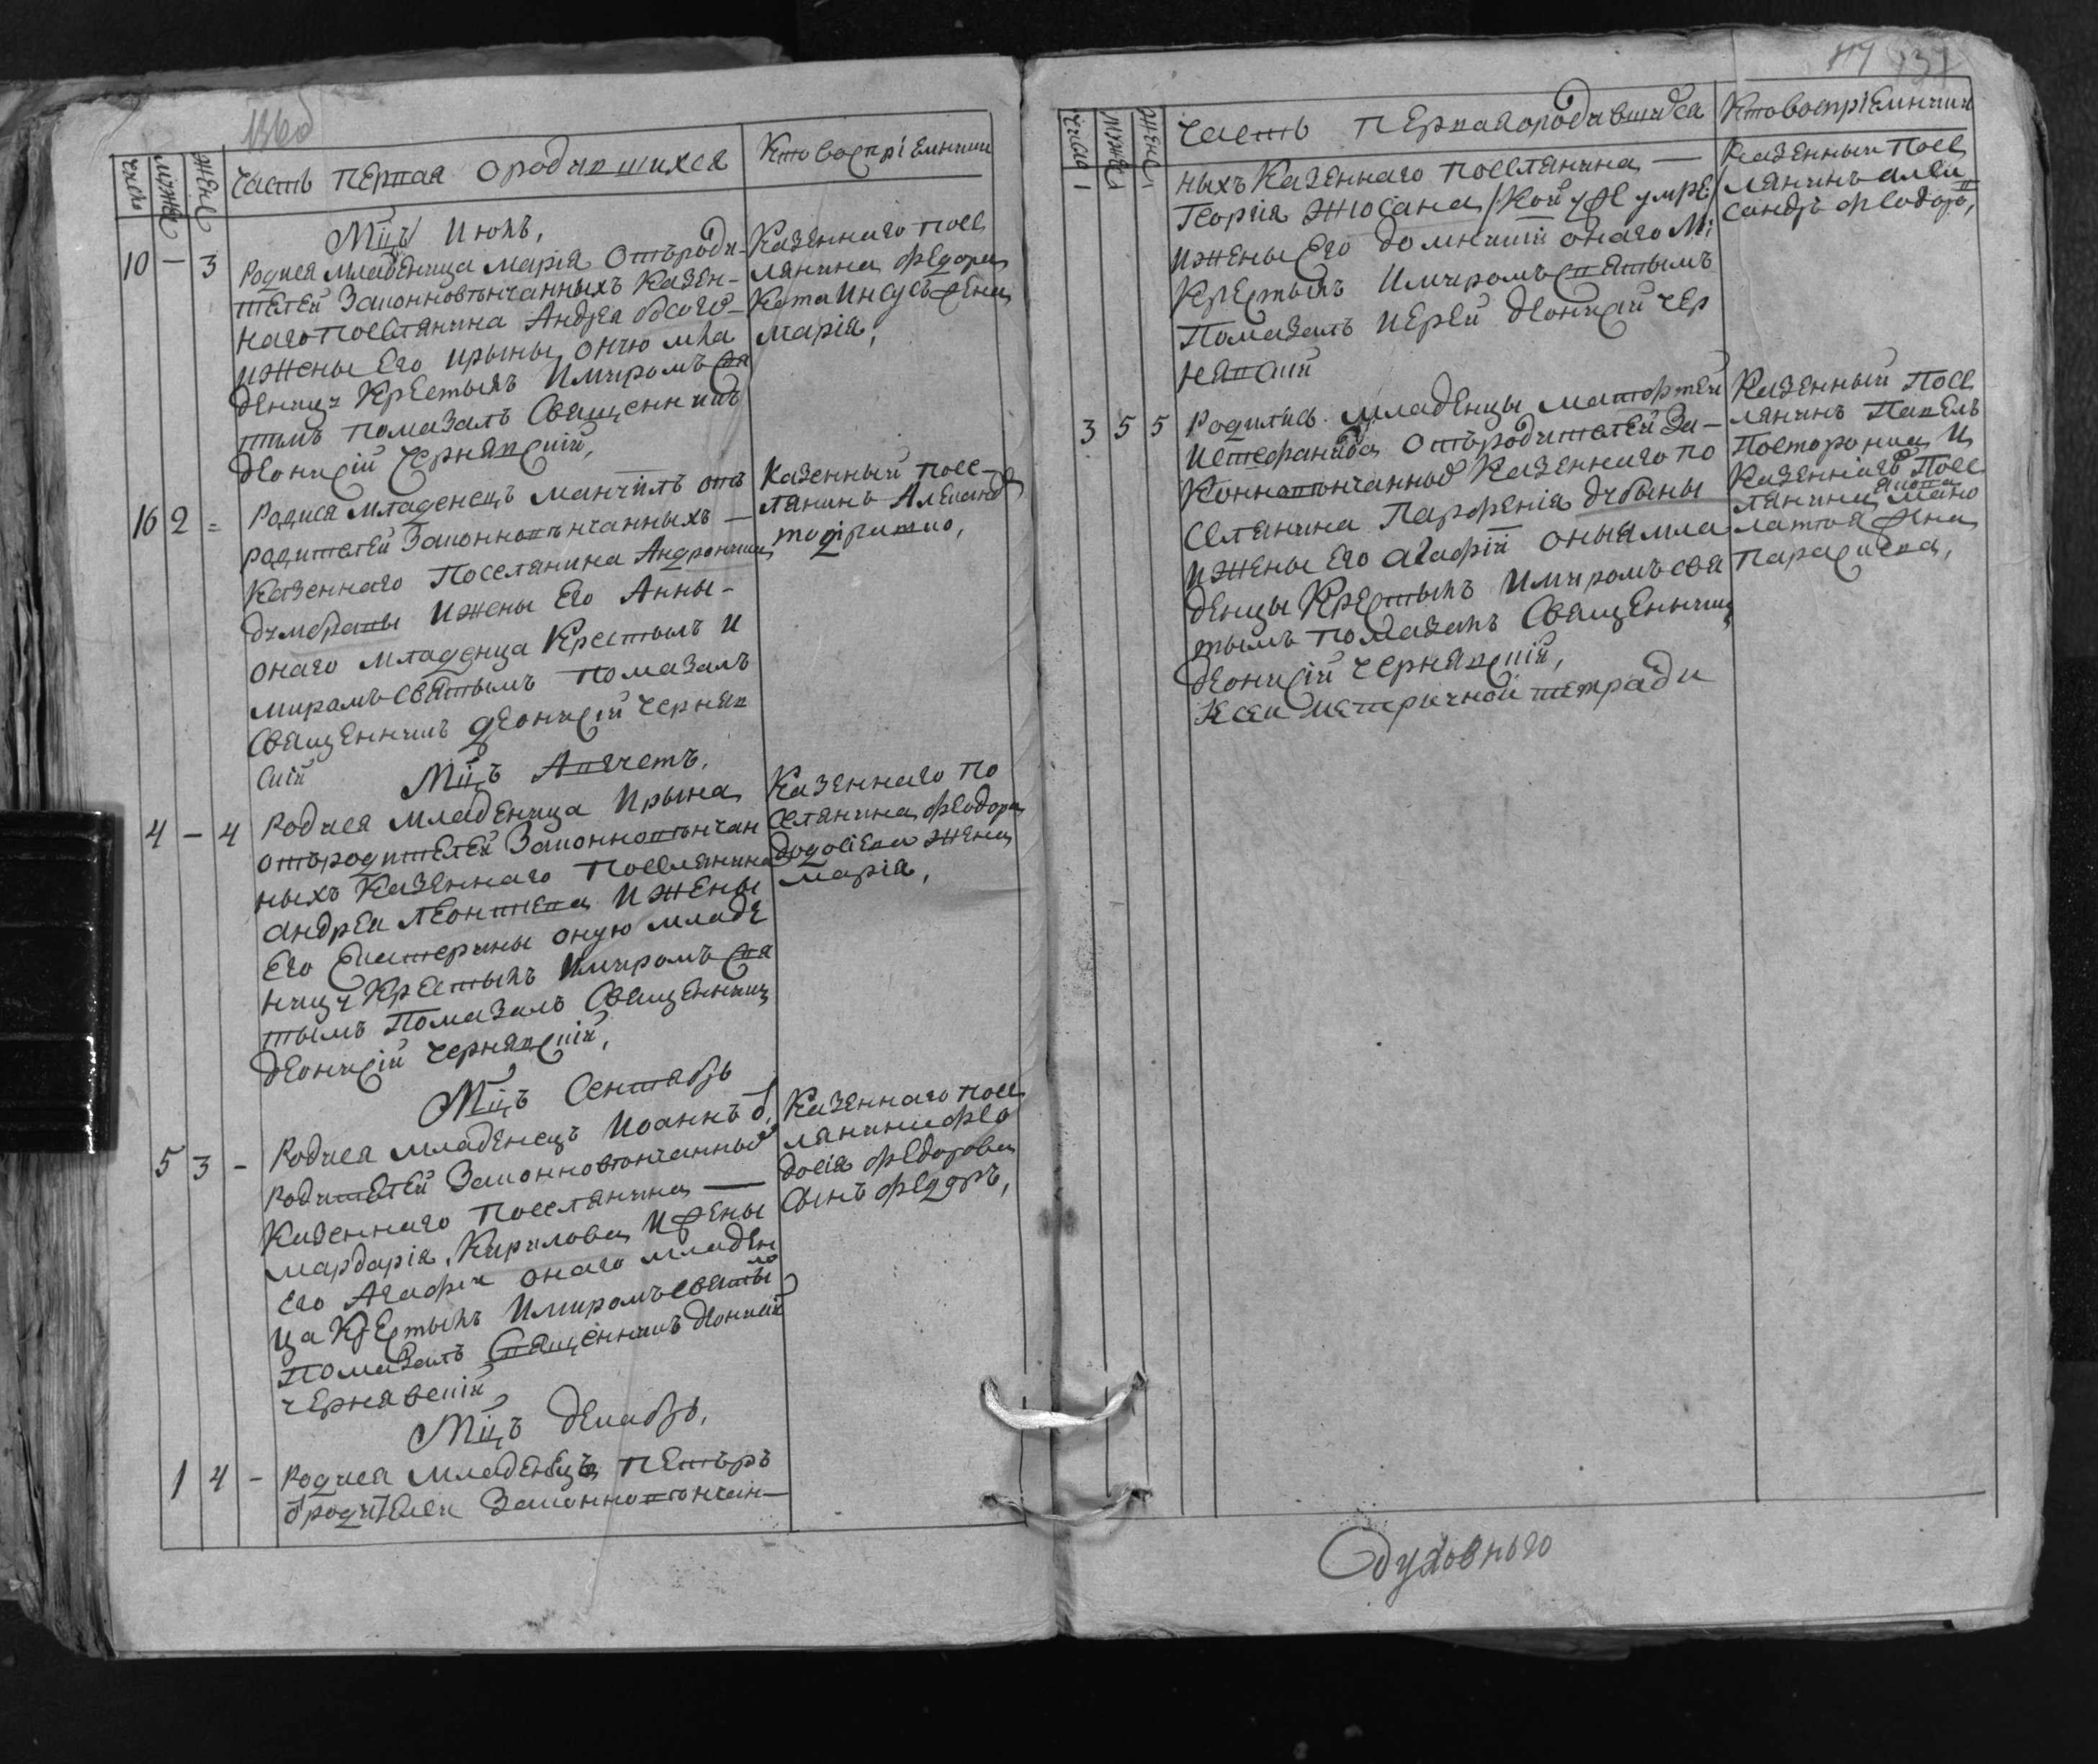 136об
число
мужес
женс
часть первая ородившихся
Кто воспріемники
Мцъ Июль,
10 — 3
Родися младеница Марія Отъроди-
телей Законновѣнчанныхъ Казен-
наго Поселянина Андрея
ижены Его Ирыны оную мла
деницу Крестылъ Имиромъ свя
тымъ помазалъ Священникъ
деонисій Чернявскій,
Казеннаго посе
лянина Федора
жена
Марія,
16 2 =
Родися младенецъ отъ
родителей Законновѣнчанныхъ —
Казеннаго Поселянина
ижены Его Анны-
онаго младенца Крестылъ и
миромъ святымъ помазалъ
Священникъ деонисій Черняв
скій
Казенный посе-
лянинъ
Мцъ Август,
4 — 4
Родися младеница Ирына
отъродителей Законновѣнчан
ныхъ Казеннаго поселянина
андрея леонтиева ижены
Его Екатерины оную младе
ницу Крестылъ Имиромъ свя
тымъ помазалъ Священникъ
деонисій чернявскій,
Казеннаго по
селянина феодора
жена
марія,
Мцъ Сентябрь
5 3 -
Родися младенецъ Иоаннъ ѿ
родителей Законновѣнчанныхъ
Казеннаго поселянина —
мардарія Кирилова Ижены
его Агафіи онаго младен
ца Крестылъ Имиромъ святымъ
помазалъ Священникъ деонисій
чернявскій
Казеннаго посе
лянина фео
досія федорова
сынъ федоръ,
Мцъ декабрь,
1 4 -
Родися младенецъ Петъръ
ѿ родителей Законновѣнчан-
117 137
число
мужес
женс
Часть первая ородившихся
Кто воспріемники
ныхъ Казеннаго поселянина —
Георгия Жосана /Кой уже умре/
ижены Его домникіи онаго М:
Крестылъ Имиромъ святымъ
Помазалъ Иерей деонисій чер
нявскій
Казенный посе
лянинъ алек
сандръ феодоро,
3 5 5
Родились младенцы
истефанида отъродителей За-
конновѣнчанныхъ Казеннаго по
селянина Парфенія
ижены Его агафіи оныя мла
денцы Крестылъ Имиромъ свя
тымъ помазалъ Священникъ
деонисій чернявскій,
Ксеи метричной тетради
Казенный посе
лянинъ Павелъ
и
Казеннаго посе
лянина
жена
Параскева,
духовнаго